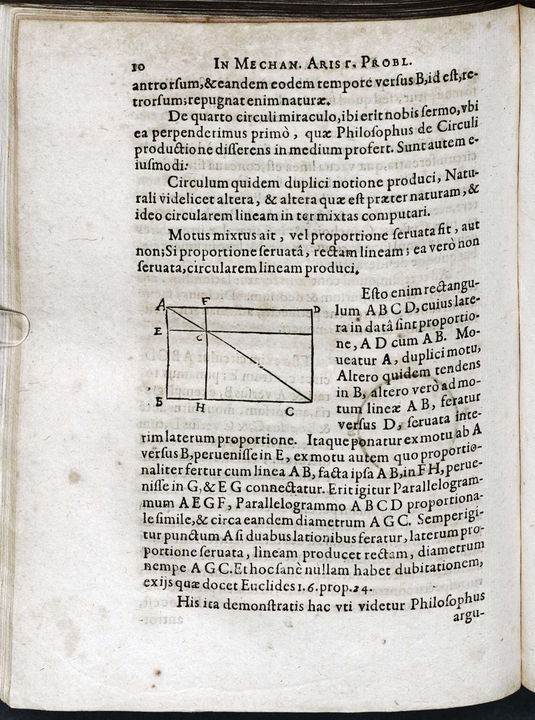 10 IN MECHAN. ARIST. PROBL.
antrorsum,&eandem eodem tempore versus B,id est,re-
trorsum;repugnat enim naturæ.
De quarto circuli miraculo,ibi erit nobis sermo,vbi
ea perpenderimus primò, quæ Philosophus de Circuli
productione disserens in medium profert. Sunt autem e-
iusmodi:
Circulum quidem duplici notione produci, Natu-
rali videlicet altera, & altera quæ est præter naturam, &
ideo circularem lineam inter mixtas computari.
Motus mixtus ait, vel proportione seruata fit, aut
non;Si proportione seruatâ, rectam lineam; ea verò non
seruata,circularem lineam produci.
Esto enim rectangu-
lum ABCD,cuius late-
ra in datâ sint proportio-
ne, AD cum AB. Mo-
ueatur A, duplici motu,
Altero quidem tendens
in B, altero verò ad mo-
tum lineæ AB, feratur
versus D, seruata inte-
A F D
E G
B H C
rim laterum proportione. Itaque ponatur ex motu ab A
versus B,peruenisse in E, ex motu autem quo proportio-
naliter fertur cum linea AB, facta ipsa AB,in FH,perue-
nisse in G,& EG connectatur. Erit igitur Parallelogram-
mum AEGF, Parallelogrammo ABCD proportiona-
le simile,& circa eandem diametrum AGC. Semper igi-
tur punctum A si duabus lationibus feratur, laterum pro-
portione seruata, lineam producet rectam, diametrum
nempe AGC.Et hoc sanè nullam habet dubitationem,
ex ijs quæ docet Euclides l.6.prop.24.
His ita demonstratis hac vti videtur Philosophus
argu-